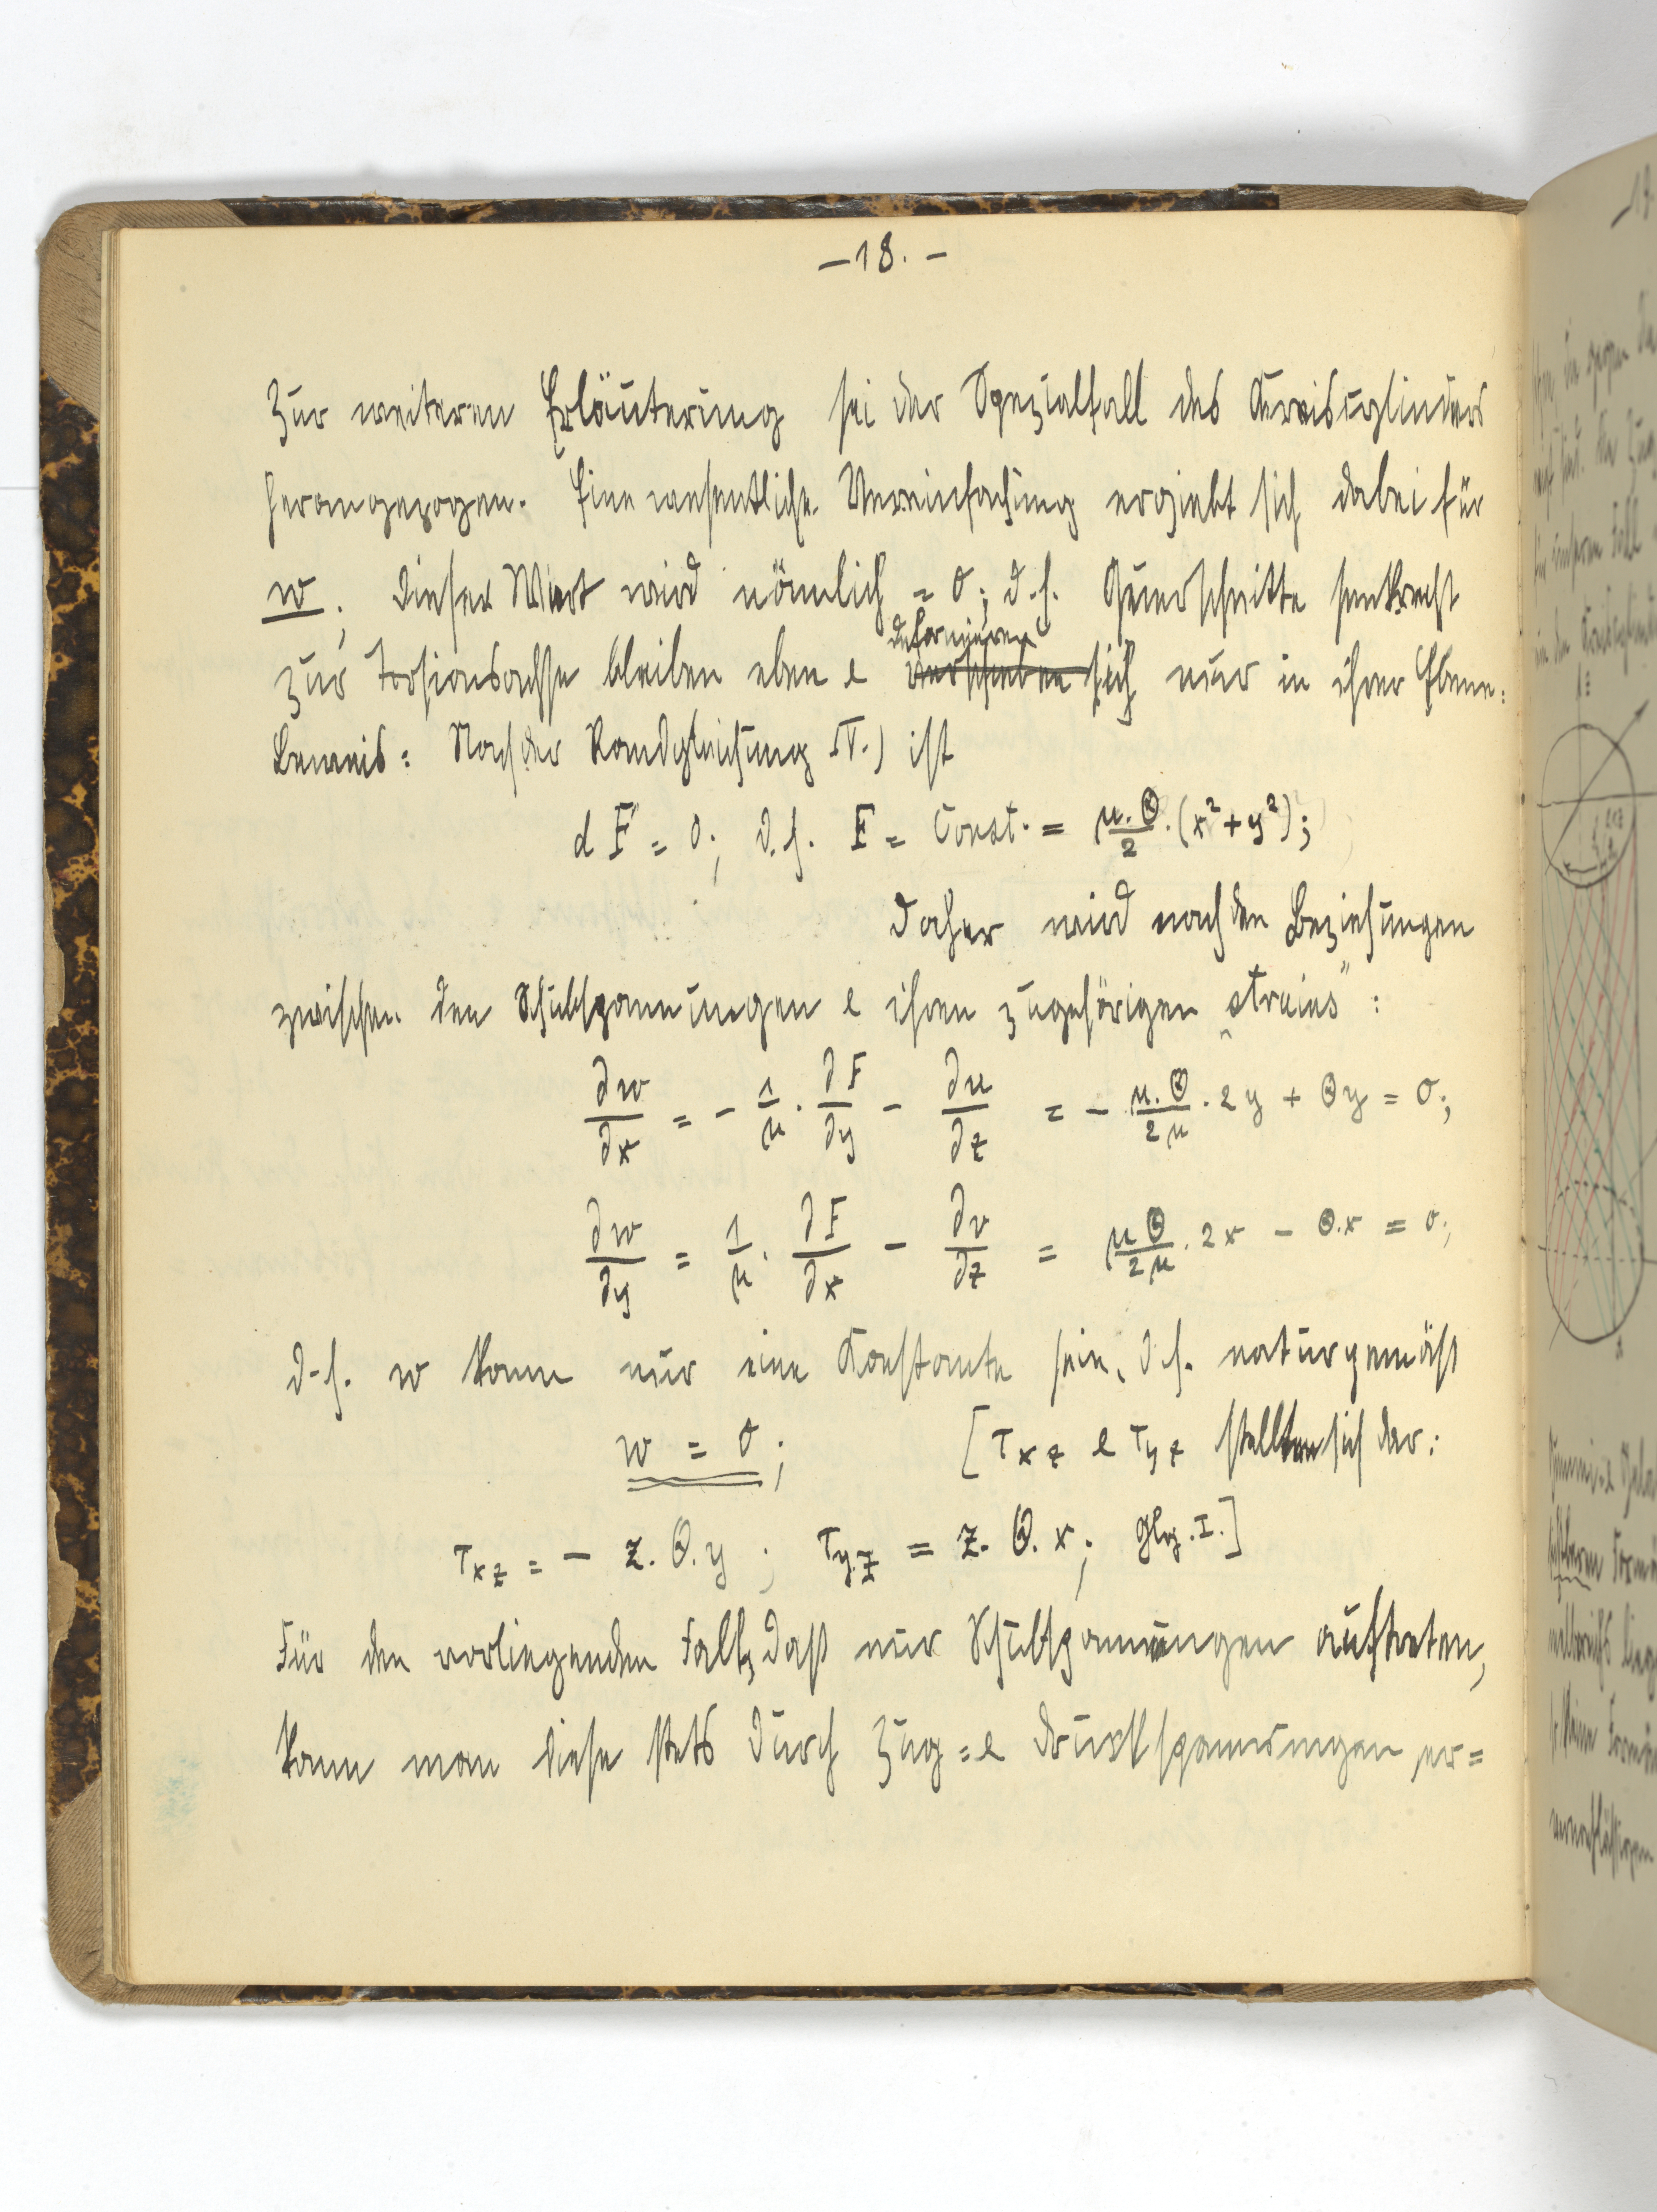 –18.–
Zur weiteren Erläuterung sei der Spezialfall des Kreiscylinders
herangezogen. Eine wesentliche Vereinfachung ergiebt sich dabei für
w. Dieser Wert wird nämlich = 0; d.h. Querschnitte senkrecht
deformieren
zur Torsionsachse bleiben eben & verschieben sich nur in ihrer Ebene.
Beweis: Nach der Randgleichung IV.) ist
dF = 0; d.h. F = Const. = μ.Θ/2 . (x² + y²);
Daher wird nach den Beziehungen
zwischen den Schubspannungen & ihren zugehörigen „strains“:
∂w/∂x = - 1/μ . ∂F/∂y - ∂u/∂z = - μ.Θ/2μ . 2y + Θy = 0;
∂w/∂y = 1/μ . ∂F/∂x - ∂v/∂z = μΘ/2μ . 2x - Θ.x = 0;
d.h. w kann nur eine Konstante sein, d.h. naturgemäss
w = 0; [τxz & τyz stellten sich dar:
τxz = - z.Θ.y ; τyz = z.Θ.x; Glg. I.]
Für den vorliegenden Fall, daß nur Schubspannungen auftreten,
kann man diese stets durch Zug = & Druckspannungen er=